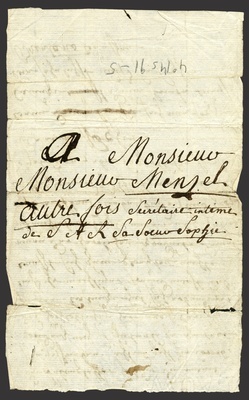 A Monsieur
Monsieur Menzel
autre fois Secrétaire intime
de S A R Sa Soeur Sophie